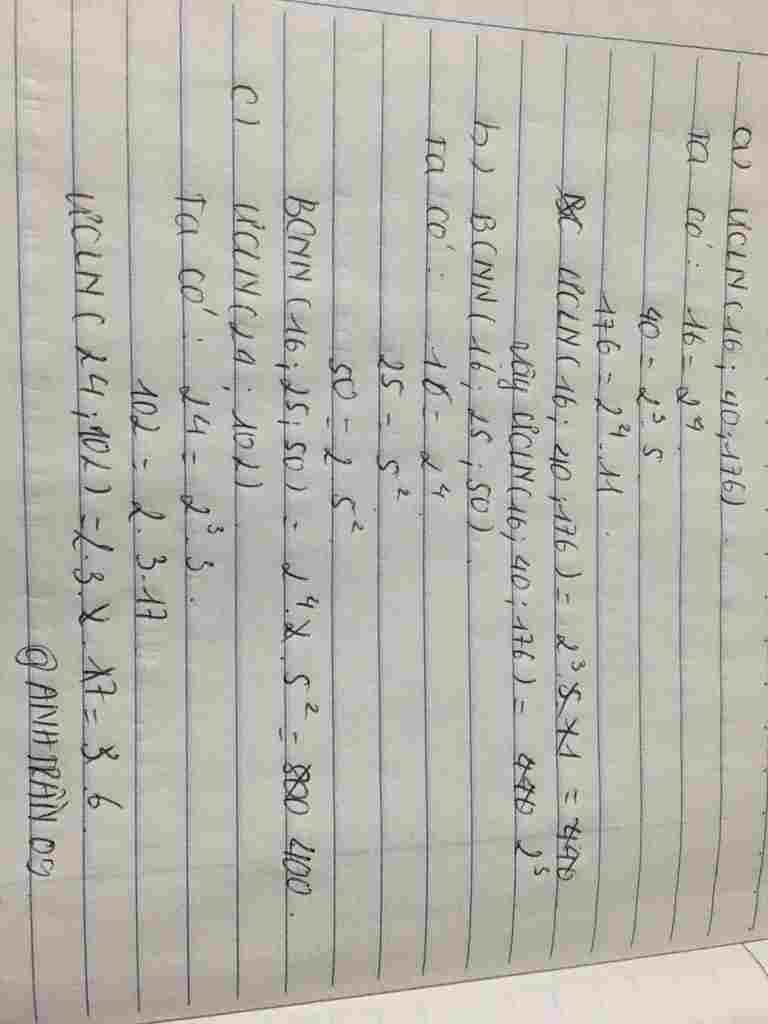 a) ƯCLN(16; 40; 176).
Ta có: 16 = 2⁴.
40 = 2³.5
176 = 2⁴.11.
ƯCLN(16; 40; 176) = 2³.
Vậy ƯCLN(16; 40; 176) = 2³
b) BCNN(16; 25; 50).
Ta có: 16 = 2⁴
25 = 5²
50 = 2 5²
BCNN(16; 25; 50) = 2⁴. 5² = 400.
c) ƯCLN(24; 102)
Ta có: 24 = 2³.3.
102 = 2.3.17
ƯCLN(24; 102) = 2.3 = 6
@ANHTRẦN09